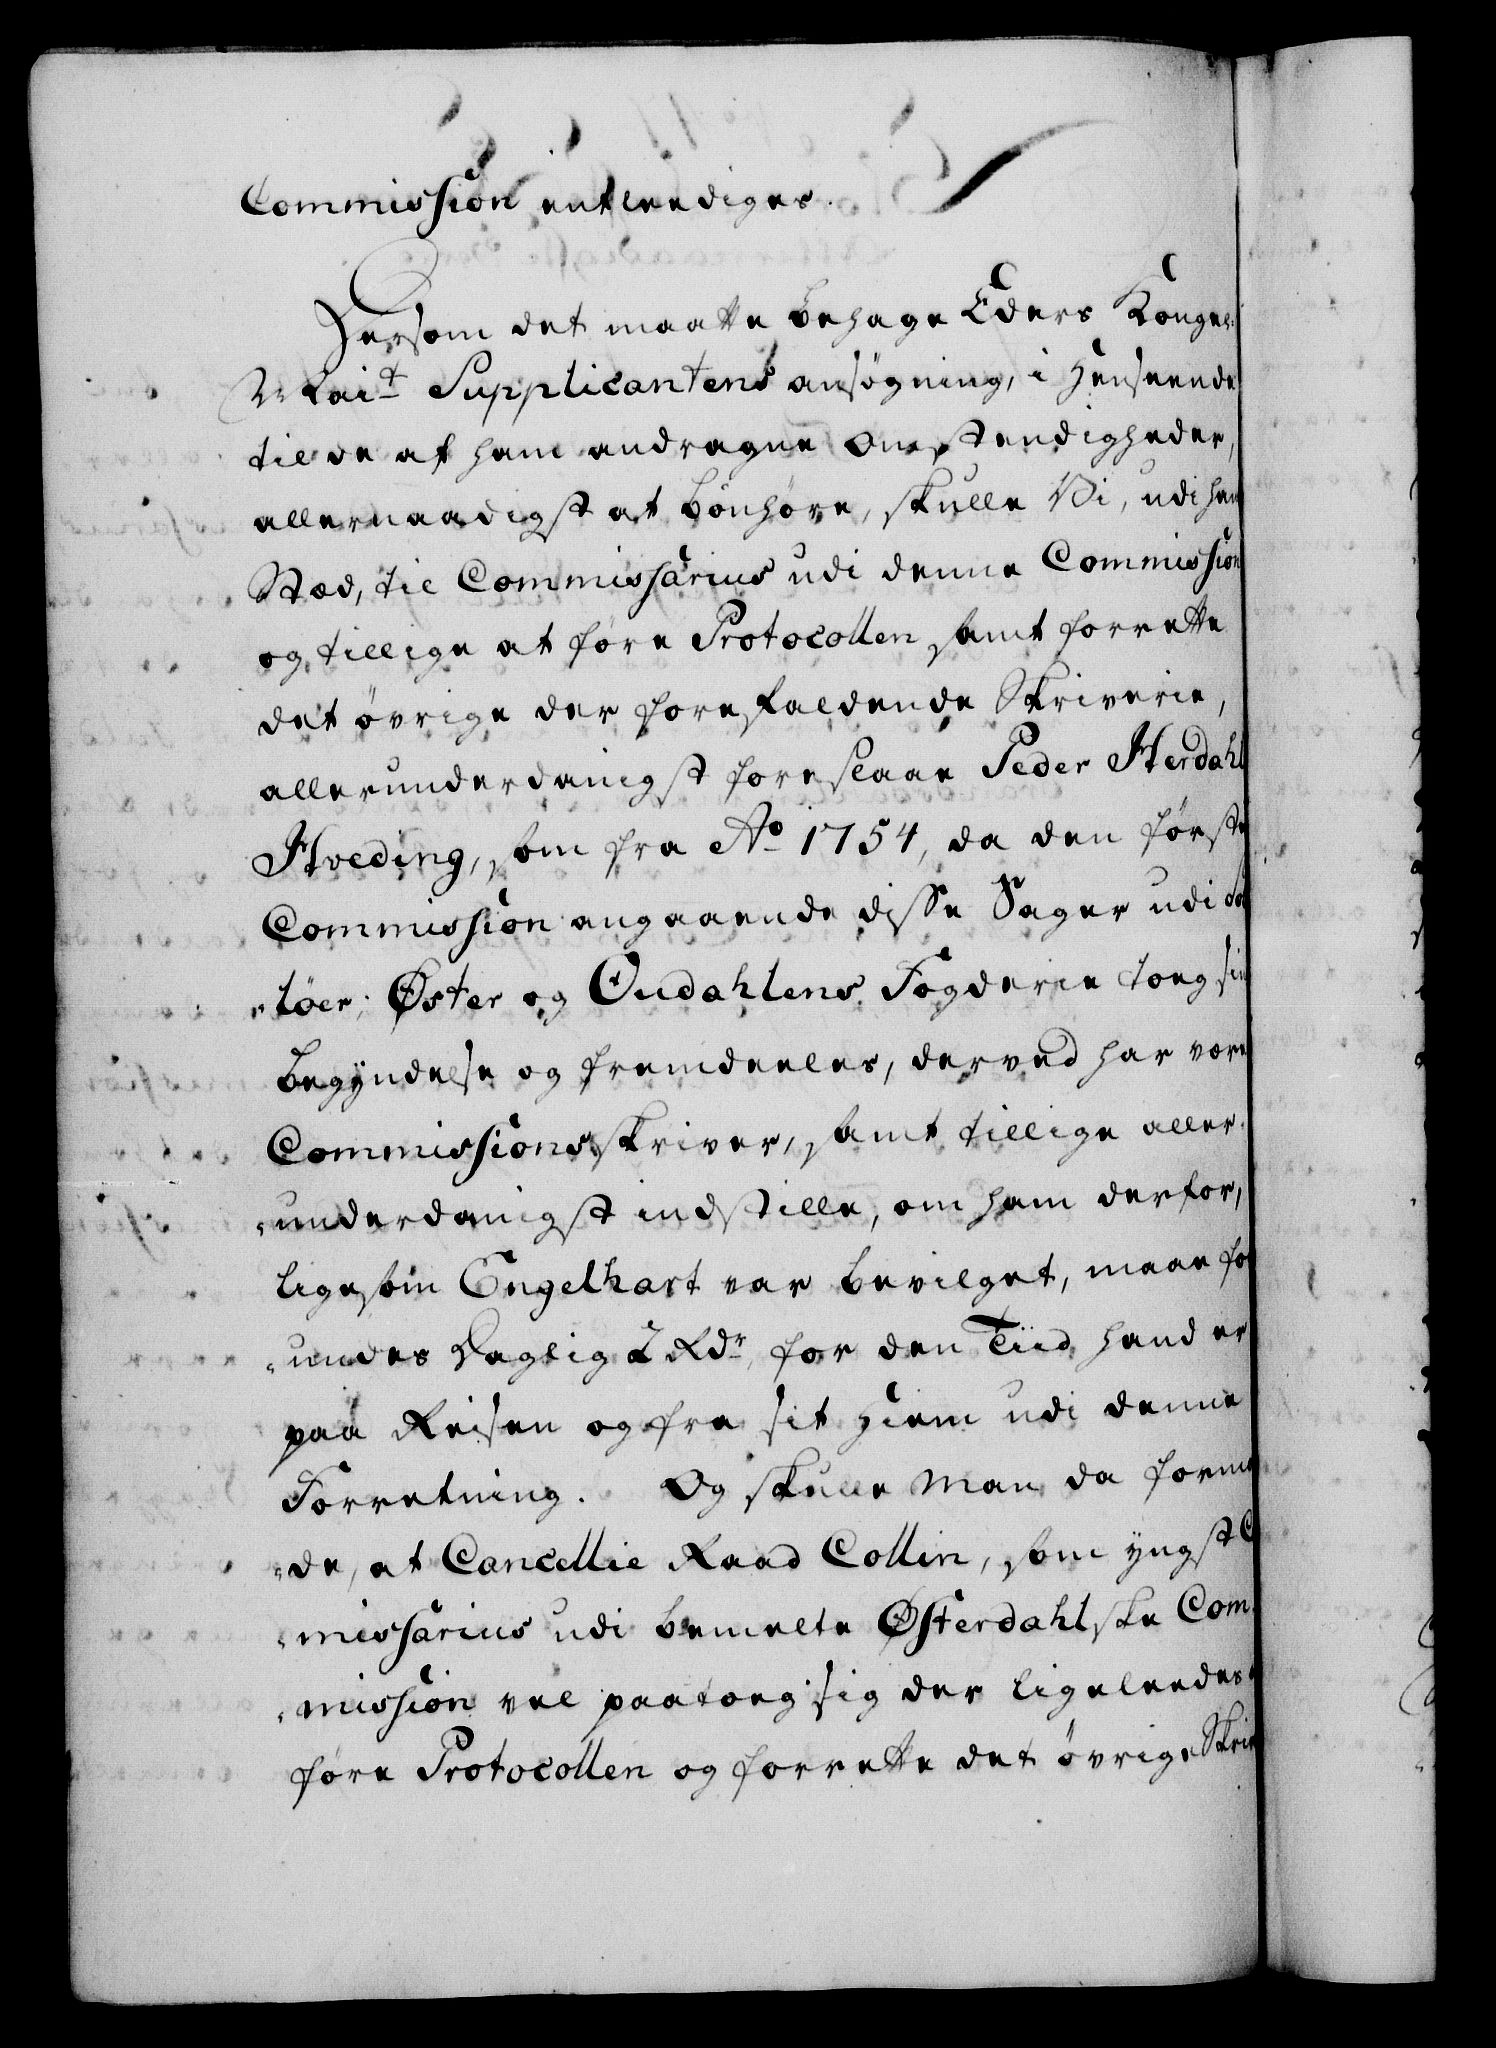 Commission entlediges.
Dersom det maatte behage Eders Kongel:
Mai:t Supplicantens ansøgning, i Henseende
til de af ham andragne Omstendigheder,
allernaadigst at bönhöre, skulle Vi, udi hans
Sted, til Commissarius udi denne Commission
og tillige at före Protocollen samt forrette
det øvrige der forefaldende Skriverie,
allerunderdanigst foreslaae Peder Herdahl
Hveding, som fra Ao 1754, da den første
Commission angaaende disse Sager udi
"löer: Øster og Oudahlens Fogderie toeg sin
begyndelse og fremdeeles, derved har være
Commissionsskriver, samt tillige aller-
"underdanigst indstille, om ham derfor,
ligesom Engelhart var bevilget, maae for
"undes Daglig 2 Rdr, for den Tiid hand er
paa Reisen og fra sit Hiem udi denne
Forretning. Og skulle Man da formo
"de, at Cancellie Raad Collin, som yngst
"missarius udi bemelte Østerdahlske Com-
"mission vel paatoeg sig der ligeleedes
före Protocollen og forrette det øvrige